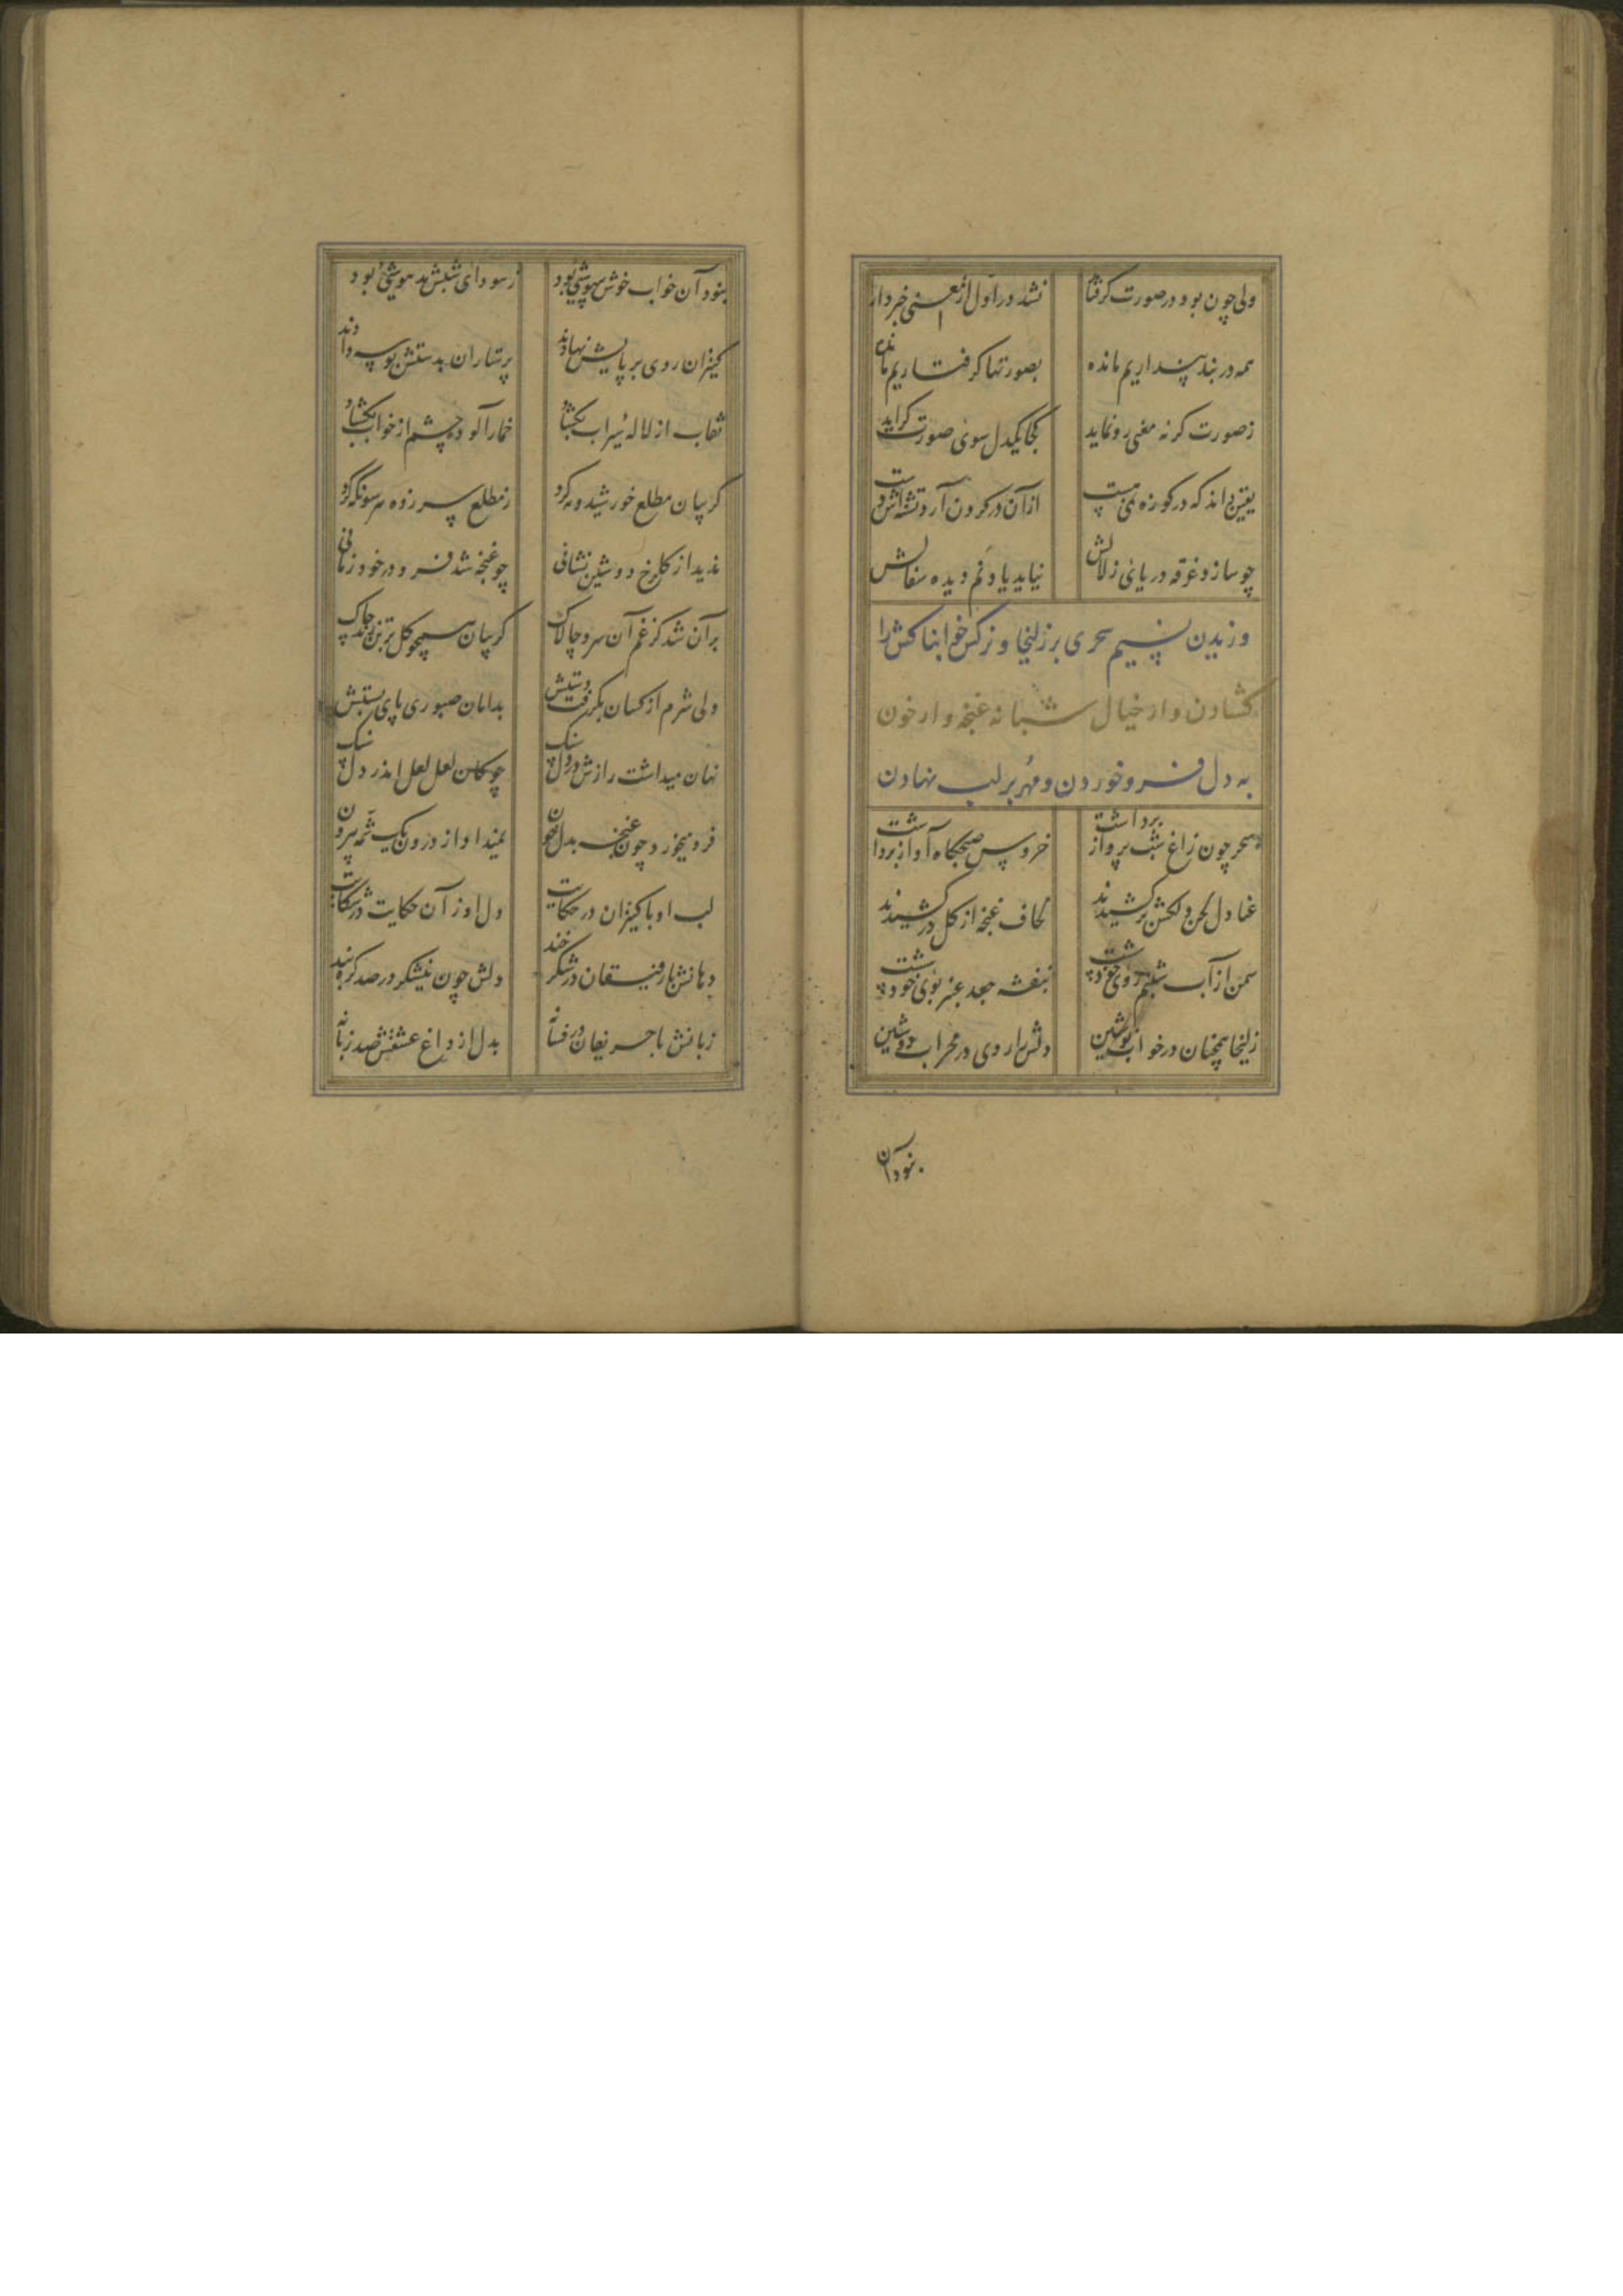 ولی چون بود در صورت گرفتار نشد در اول از معنی خبردار
همه در بند پنداریم مانده بصورتها گرفتاریم مانده
ز صورت گر نه معنی رو نماید کجا یکدل سوی صورت گراید
یقین داند که در کوزه نمی هست از آن در گردن آرد تشنه اش دست
چو سازد غرقه دریای زلالش نیاید یاد نم دیده سفالش
وزیدن نسیم سحری بر زلیخا و نرگس خوابناکش را
گشادن و از خیال شبانه غنچه وار خون
به دل فرو خوردن و مهر بر لب نهادن
سحر چون زاغ شب پرواز برداشت خروس صبحگاه آواز برداشت
عنادل لحن دلکش برکشیدند لحاف غنچه از گل درکشیدند
سمن از آب شبنم روی خود شست بنفشه جعد عنبر بوی خود شست
زلیخا همچنان در خواب نوشین دلش را روی در محراب دوشین
نبود آن
نبود آن خواب خوش بیهوشیی بود ز سودای شبش مدهوشیی بود
کنیزان روی بر پایش نهادند پرستاران بدستش بوسه دادند
نقاب از لاله سیراب بگشاد خمارآلوده چشم از خواب بگشاد
گریبان مطلع خورشید و مه کرد ز مطلع سر زده هر سو نگه کرد
ندید از گلرخ دوشین نشانی چو غنچه شد فرو در خود زمانی
بر آن شد کز غم آن سرو چالاک گریبان همچو گل بر تن زند چاک
ولی شرم از کسان بگرفت دستش بدامان صبوری پای بستش
نهان میداشت رازش در دل تنگ چو کان لعل لعل اندر دل سنگ
فرو میخورد چون غنچه بدل خون نمیداد از درون یک شمه بیرون
لب او با کنیزان در حکایت دل او زان حکایت در شکایت
دهانش با رفیقان در شکرخند دلش چون نیشکر در صد گره بند
زبانش با حریفان در فسانه بدل از داغ عشقش صد زبانه